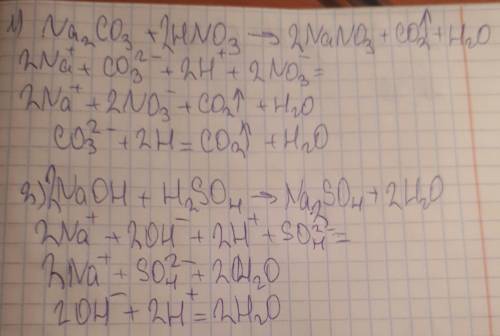 1) Na₂CO₃ + 2HNO₃ → 2NaNO₃ + CO₂↑ + H₂O
2Na⁺ + CO₃²⁻ + 2H⁺ + 2NO₃⁻ =
2Na⁺ + 2NO₃⁻ + CO₂↑ + H₂O
CO₃²⁻ + 2H = CO₂↑ + H₂O
2) 2NaOH + H₂SO₄ → Na₂SO₄ + 2H₂O
2Na⁺ + 2OH⁻ + 2H⁺ + SO₄²⁻ =
2Na⁺ + SO₄²⁻ + 2H₂O
2OH⁻ + 2H⁺ = 2H₂O